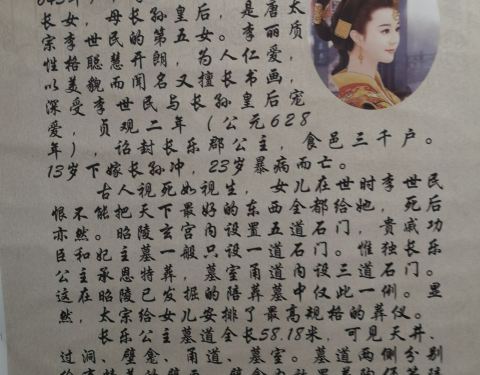 643年），
长女，母长孙皇后，是唐太
宗李世民的第五女。李丽质
性格聪慧开朗，为人仁爱，
以美貌而闻名又擅长书画，
深受李世民与长孙皇后宠
爱，贞观二年（公元628
年），诏封长乐郡公主，食邑三千户。
13岁下嫁长孙冲，23岁暴病而亡。
古人视死如视生，女儿在世时李世民
恨不能把天下最好的东西全都给她，死后
亦然。昭陵玄宫内设置五道石门，贵戚功
臣和妃主墓一般只设一道石门。惟独长乐
公主承恩特葬，墓室甬道内设三道石门。
这在昭陵已发掘的陪葬墓中仅此一例。显
然，太宗给女儿安排了最高规格的葬仪。
长乐公主墓道全长58.18米，可见天井、
过洞、壁龛、甬道、墓室。墓道两侧分别